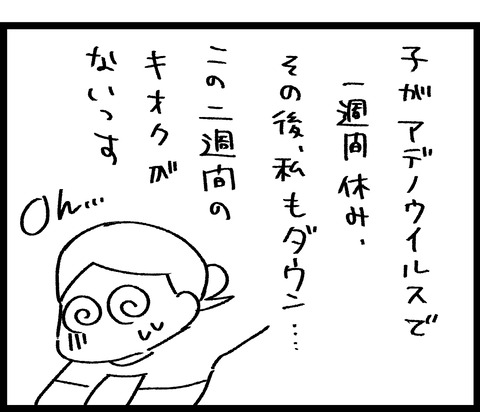 子がアデノウイルスで
一週間休み、
その後、私もダウン……
この二週間の
キオクが
ないっす
Oh...